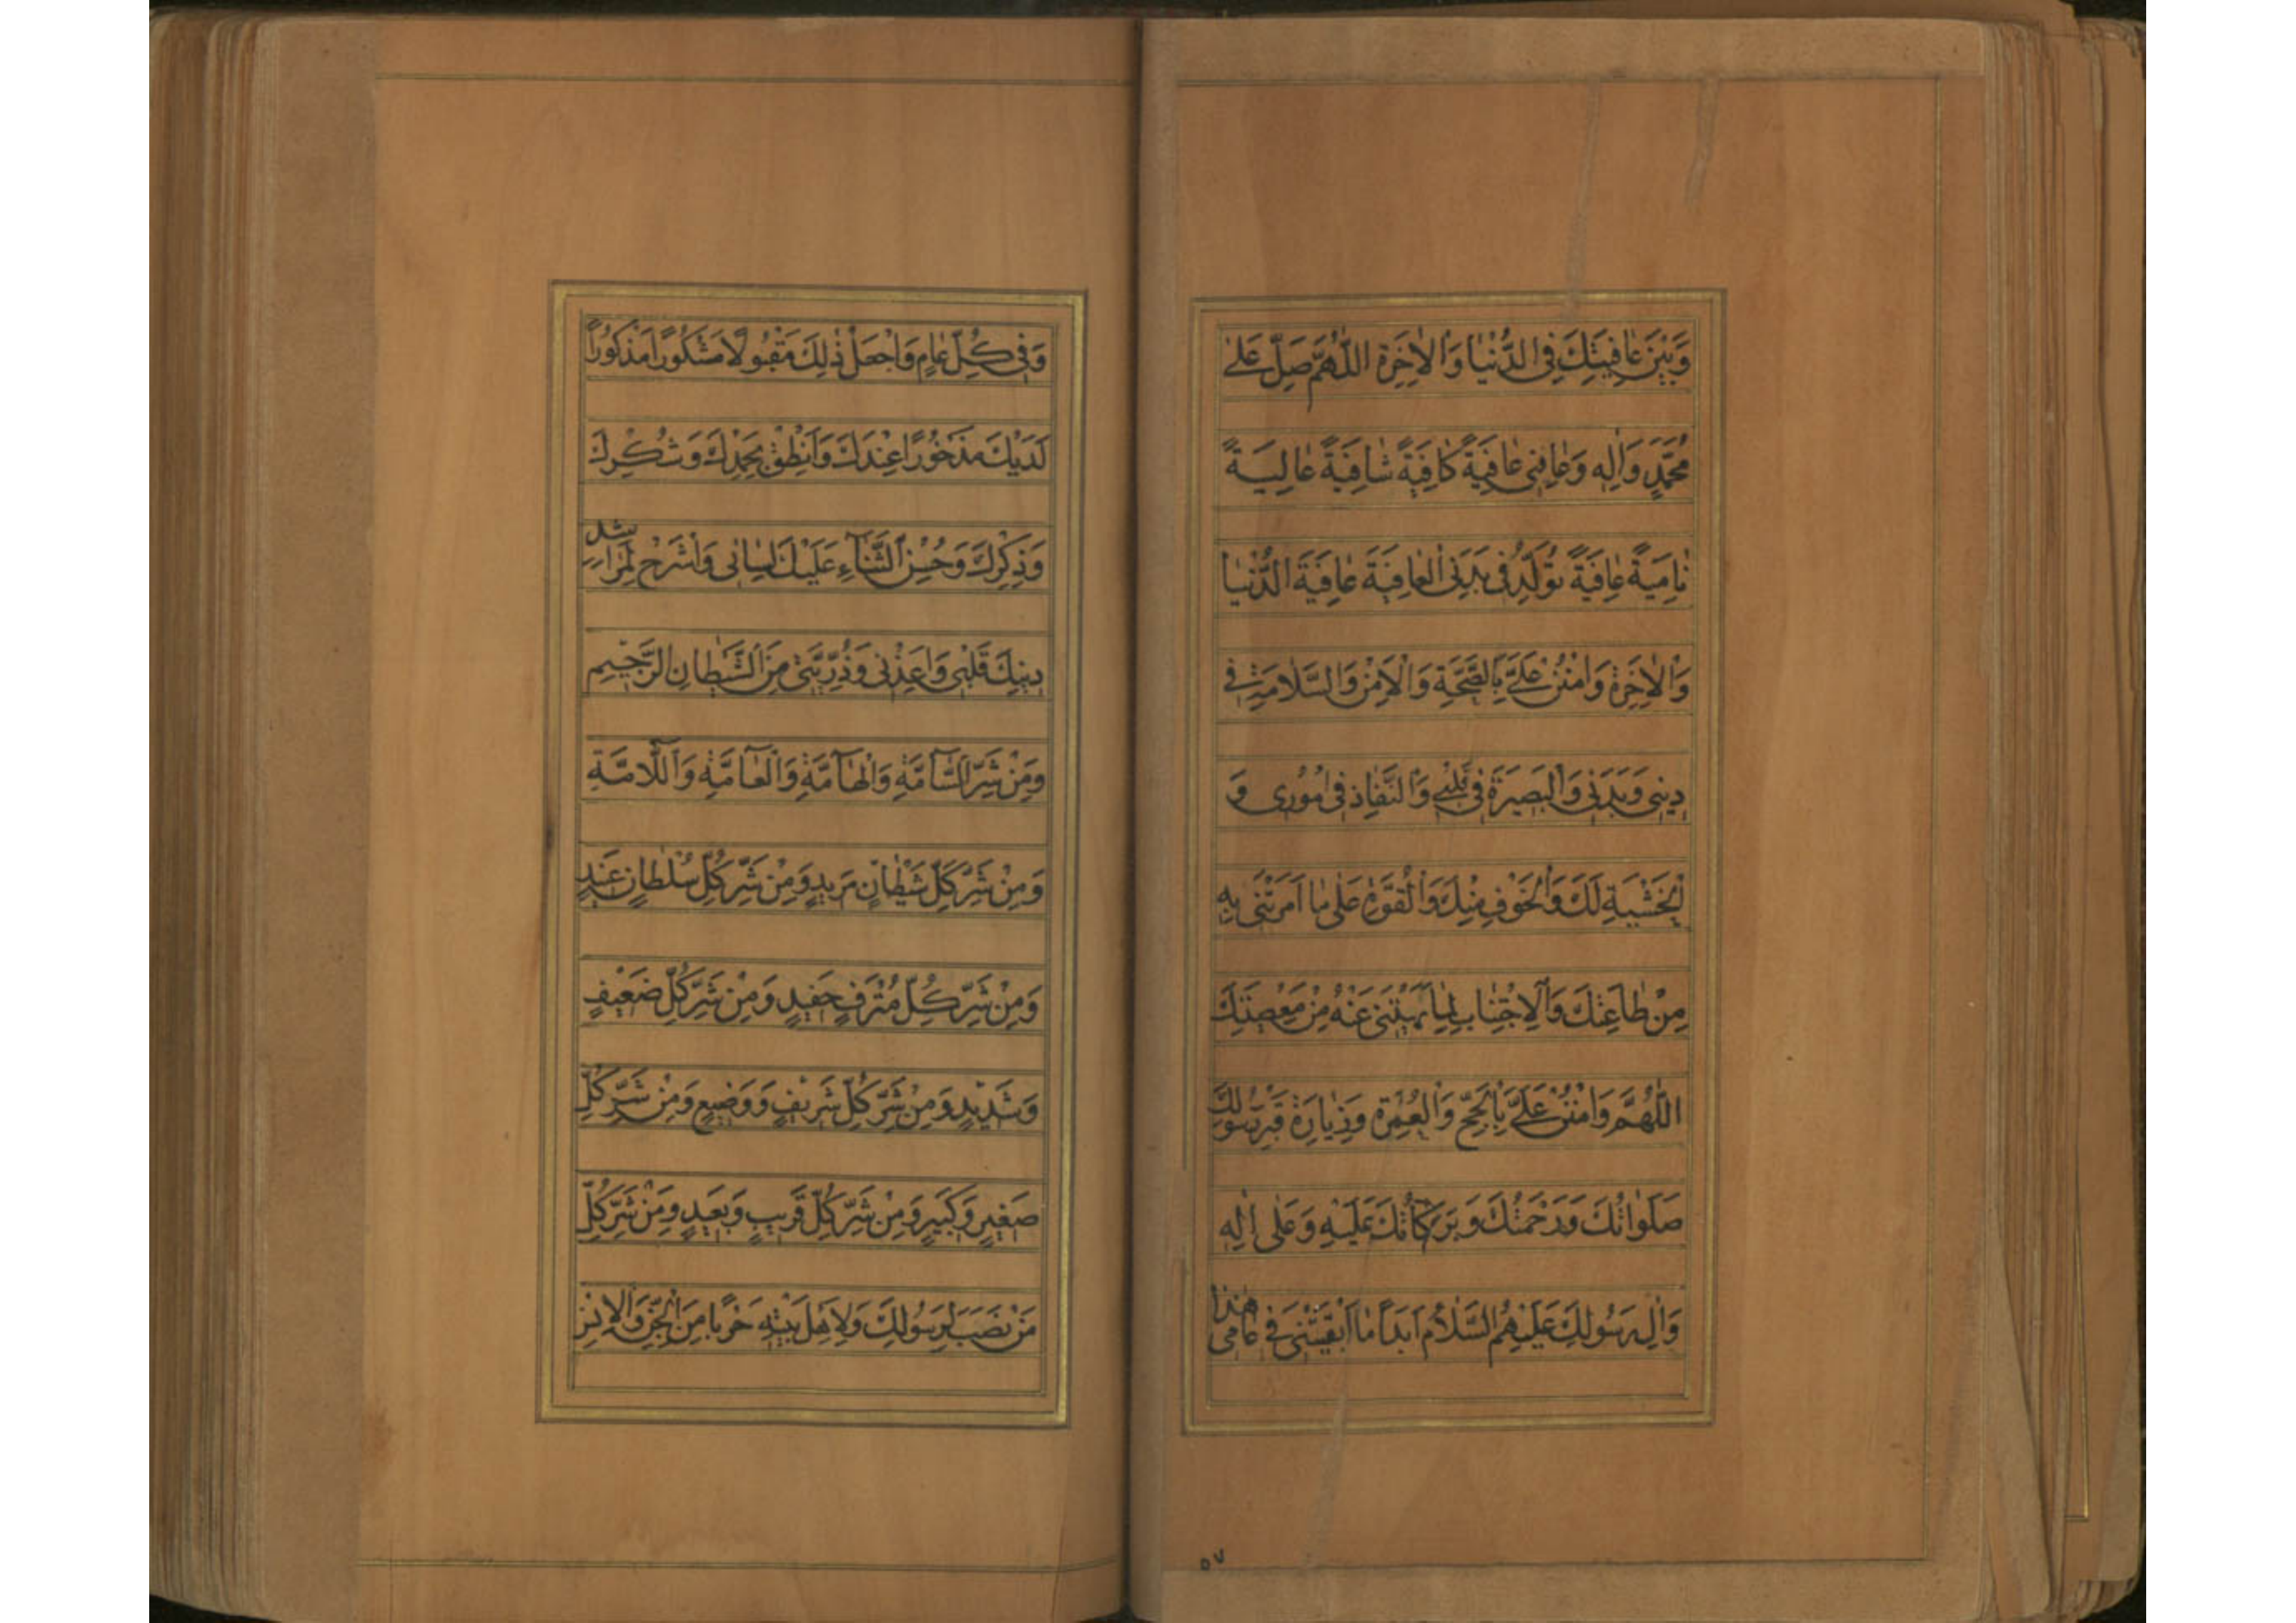 وَبَيْنَ عَافِيَتِكَ فِي الدُّنْيَا وَالْاٰخِرَةِ اَللّٰهُمَّ صَلِّ عَلٰى
مُحَمَّدٍ وَاٰلِهِ وَعَافِنِي عَافِيَةً كَافِيَةً شَافِيَةً عَالِيَةً
نَامِيَةً عَافِيَةً تُوَلِّدُ فِي بَدَنِي الْعَافِيَةَ عَافِيَةَ الدُّنْيَا
وَالْاٰخِرَةِ وَامْنُنْ عَلَيَّ بِالصِّحَّةِ وَالْاَمْنِ وَالسَّلَامَةِ فِي
دِينِي وَبَدَنِي وَالْبَصِيرَةِ فِي قَلْبِي وَالنَّفَاذِ فِي اُمُورِي وَ
الْخَشْيَةِ لَكَ وَالْخَوْفِ مِنْكَ وَالْقُوَّةِ عَلٰى مَا اَمَرْتَنِي بِهِ
مِنْ طَاعَتِكَ وَالْاِجْتِنَابِ لِمَا نَهَيْتَنِي عَنْهُ مِنْ مَعْصِيَتِكَ
اَللّٰهُمَّ وَامْنُنْ عَلَيَّ بِالْحَجِّ وَالْعُمْرَةِ وَزِيَارَةِ قَبْرِ رَسُولِكَ
صَلَوَاتُكَ وَرَحْمَتُكَ وَبَرَكَاتُكَ عَلَيْهِ وَعَلٰى اٰلِهِ
وَاٰلِ رَسُولِكَ عَلَيْهِمُ السَّلَامُ اَبَدًا مَا اَبْقَيْتَنِي فِي عَامِي هٰذَا
٥٧
وَفِي كُلِّ عَامٍ وَاجْعَلْ ذٰلِكَ مَقْبُولًا مَشْكُورًا مَذْكُورًا
لَدَيْكَ مَذْخُورًا عِنْدَكَ وَاَنْطِقْ بِحَمْدِكَ وَشُكْرِكَ
وَذِكْرِكَ وَحُسْنِ الثَّنَاءِ عَلَيْكَ لِسَانِي وَاشْرَحْ لِمَرَاشِدِ
دِينِكَ قَلْبِي وَاَعِذْنِي وَذُرِّيَّتِي مِنَ الشَّيْطَانِ الرَّجِيمِ
وَمِنْ شَرِّ السَّآمَّةِ وَالْهَآمَّةِ وَالْعَآمَّةِ وَاللَّآمَّةِ
وَمِنْ شَرِّ كُلِّ شَيْطَانٍ مَرِيدٍ وَمِنْ شَرِّ كُلِّ سُلْطَانٍ عَنِيدٍ
وَمِنْ شَرِّ كُلِّ مُتْرَفٍ حَفِيدٍ وَمِنْ شَرِّ كُلِّ ضَعِيفٍ
وَشَدِيدٍ وَمِنْ شَرِّ كُلِّ شَرِيفٍ وَوَضِيعٍ وَمِنْ شَرِّ كُلِّ
صَغِيرٍ وَكَبِيرٍ وَمِنْ شَرِّ كُلِّ قَرِيبٍ وَبَعِيدٍ وَمِنْ شَرِّ كُلِّ
مَنْ نَصَبَ لِرَسُولِكَ وَلِاَهْلِ بَيْتِهِ حَرْبًا مِنَ الْجِنِّ وَالْاِنْسِ